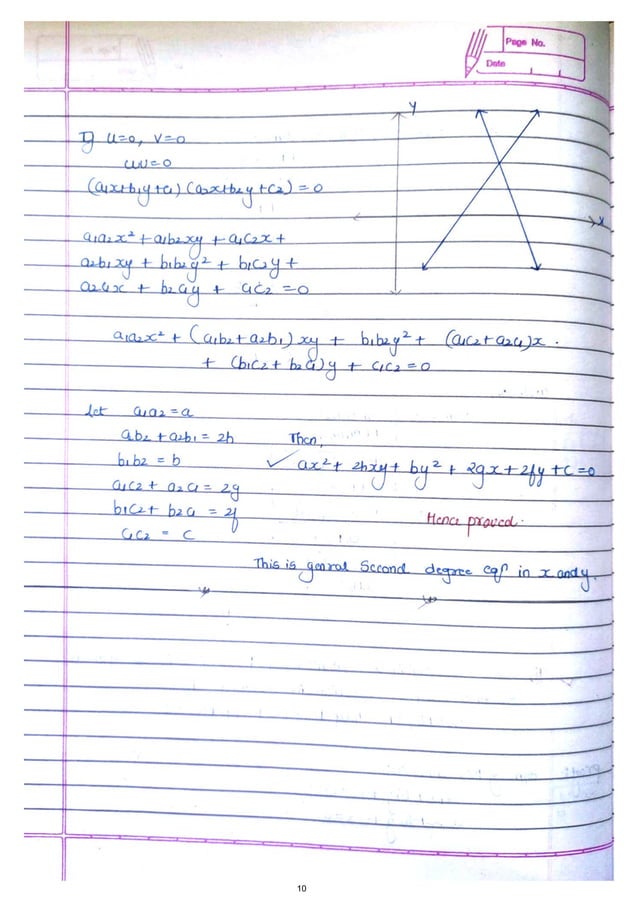 Page No.
Date
Y
If u=0, v=0
uv=0
(a₁x+b₁y+c₁) (a₂x+b₂y+c₂) = 0
x
a₁a₂x² + a₁b₂xy + a₁c₂x +
a₂b₁xy + b₁b₂y² + b₁c₂y +
a₂c₁x + b₂c₁y + c₁c₂ = 0
a₁a₂x² + (a₁b₂+a₂b₁) xy + b₁b₂y² + (a₁c₂+a₂c₁)x .
+ (b₁c₂ + b₂c₁)y + c₁c₂ = 0
Let a₁a₂ = a
a₁b₂ + a₂b₁ = 2h Then,
b₁b₂ = b ✓ ax² + 2hxy + by² + 2gx + 2fy + c = 0
a₁c₂ + a₂c₁ = 2g
b₁c₂ + b₂c₁ = 2f Hence proved.
c₁c₂ = c
This is genral Second degree eqⁿ in x and y.
10